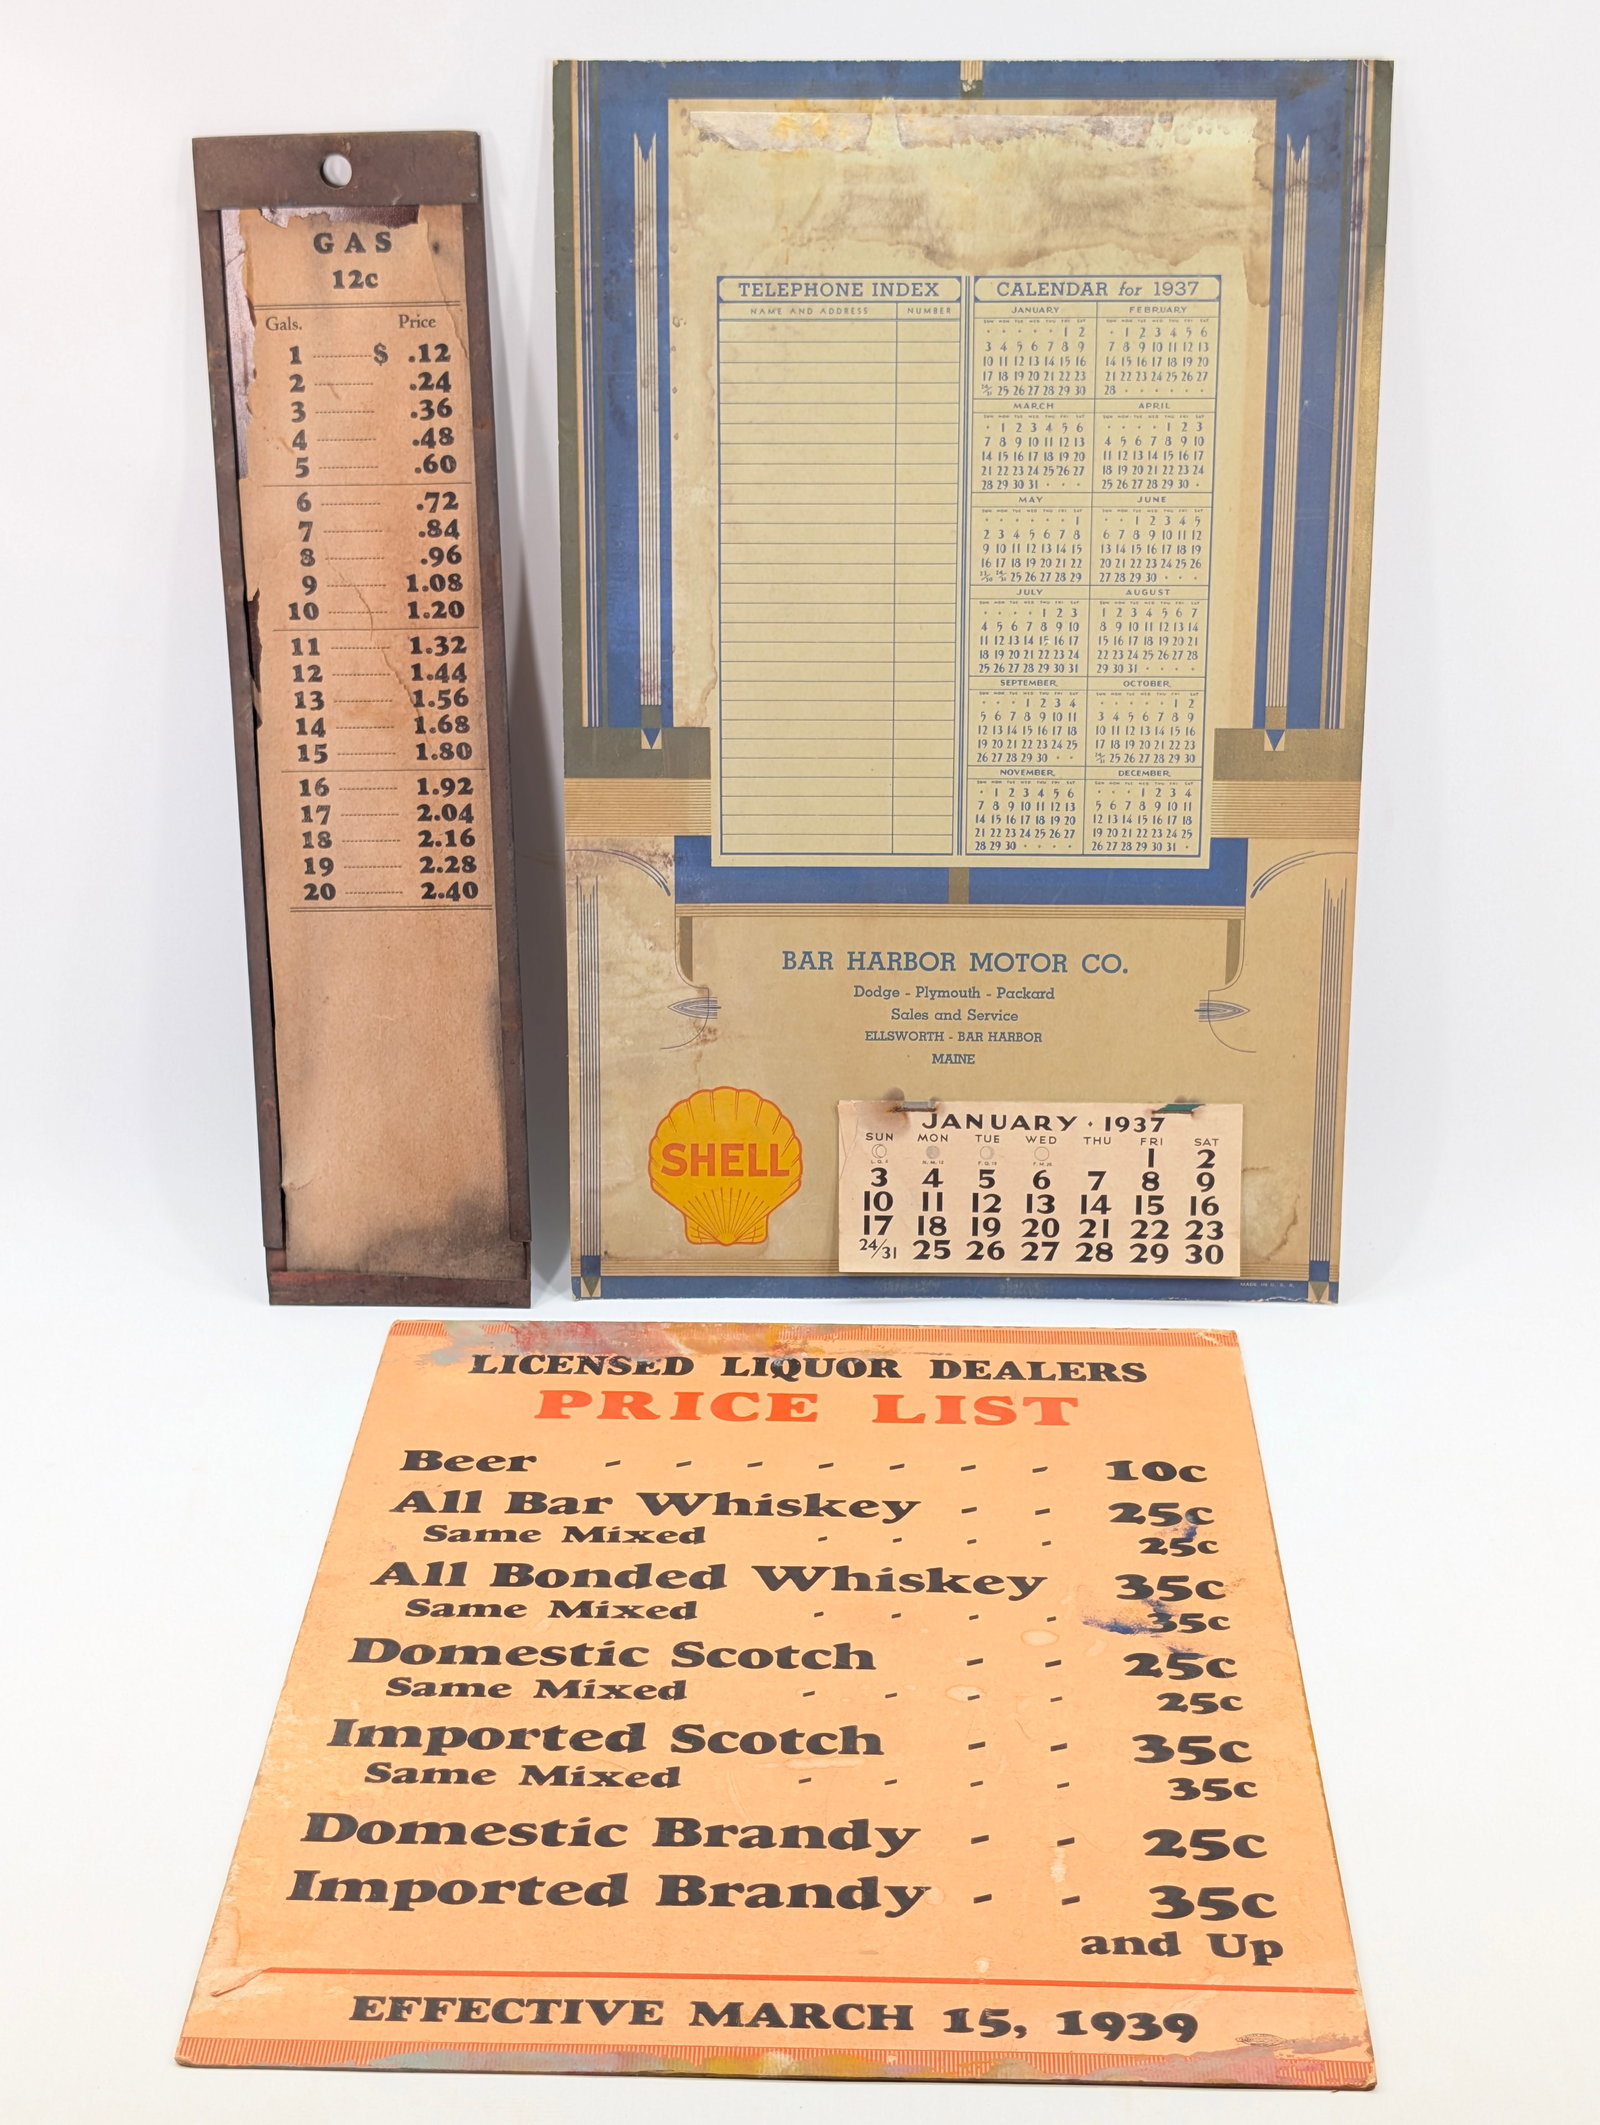 GAS
12c
Gals. Price
1 $ .12
2 .24
3 .36
4 .48
5 .60
6 .72
7 .84
8 .96
9 1.08
10 1.20
11 1.32
12 1.44
13 1.56
14 1.68
15 1.80
16 1.92
17 2.04
18 2.16
19 2.28
20 2.40
TELEPHONE INDEX
NAME AND ADDRESS NUMBER
CALENDAR for 1937
JANUARY
SUN MON TUE WED THU FRI SAT
1 2
3 4 5 6 7 8 9
10 11 12 13 14 15 16
17 18 19 20 21 22 23
24/31 25 26 27 28 29 30
FEBRUARY
SUN MON TUE WED THU FRI SAT
1 2 3 4 5 6
7 8 9 10 11 12 13
14 15 16 17 18 19 20
21 22 23 24 25 26 27
28
MARCH
SUN MON TUE WED THU FRI SAT
1 2 3 4 5 6
7 8 9 10 11 12 13
14 15 16 17 18 19 20
21 22 23 24 25 26 27
28 29 30 31
APRIL
SUN MON TUE WED THU FRI SAT
1 2 3
4 5 6 7 8 9 10
11 12 13 14 15 16 17
18 19 20 21 22 23 24
25 26 27 28 29 30
MAY
SUN MON TUE WED THU FRI SAT
1
2 3 4 5 6 7 8
9 10 11 12 13 14 15
16 17 18 19 20 21 22
23/30 24/31 25 26 27 28 29
JUNE
SUN MON TUE WED THU FRI SAT
1 2 3 4 5
6 7 8 9 10 11 12
13 14 15 16 17 18 19
20 21 22 23 24 25 26
27 28 29 30
JULY
SUN MON TUE WED THU FRI SAT
1 2 3
4 5 6 7 8 9 10
11 12 13 14 15 16 17
18 19 20 21 22 23 24
25 26 27 28 29 30 31
AUGUST
SUN MON TUE WED THU FRI SAT
1 2 3 4 5 6 7
8 9 10 11 12 13 14
15 16 17 18 19 20 21
22 23 24 25 26 27 28
29 30 31
SEPTEMBER
SUN MON TUE WED THU FRI SAT
1 2 3 4
5 6 7 8 9 10 11
12 13 14 15 16 17 18
19 20 21 22 23 24 25
26 27 28 29 30
OCTOBER
SUN MON TUE WED THU FRI SAT
1 2
3 4 5 6 7 8 9
10 11 12 13 14 15 16
17 18 19 20 21 22 23
24/31 25 26 27 28 29 30
NOVEMBER
SUN MON TUE WED THU FRI SAT
1 2 3 4 5 6
7 8 9 10 11 12 13
14 15 16 17 18 19 20
21 22 23 24 25 26 27
28 29 30
DECEMBER
SUN MON TUE WED THU FRI SAT
1 2 3 4
5 6 7 8 9 10 11
12 13 14 15 16 17 18
19 20 21 22 23 24 25
26 27 28 29 30 31
BAR HARBOR MOTOR CO.
Dodge - Plymouth - Packard
Sales and Service
ELLSWORTH - BAR HARBOR
MAINE
SHELL
JANUARY · 1937
SUN MON TUE WED THU FRI SAT
1 2
3 4 5 6 7 8 9
10 11 12 13 14 15 16
17 18 19 20 21 22 23
24/31 25 26 27 28 29 30
MADE IN U. S. A.
LICENSED LIQUOR DEALERS
PRICE LIST
Beer - - - - - - - 10c
All Bar Whiskey - - 25c
Same Mixed - - - - 25c
All Bonded Whiskey 35c
Same Mixed - - - - 35c
Domestic Scotch - - 25c
Same Mixed - - - - 25c
Imported Scotch - - 35c
Same Mixed - - - - 35c
Domestic Brandy - - 25c
Imported Brandy - - 35c
and Up
EFFECTIVE MARCH 15, 1939